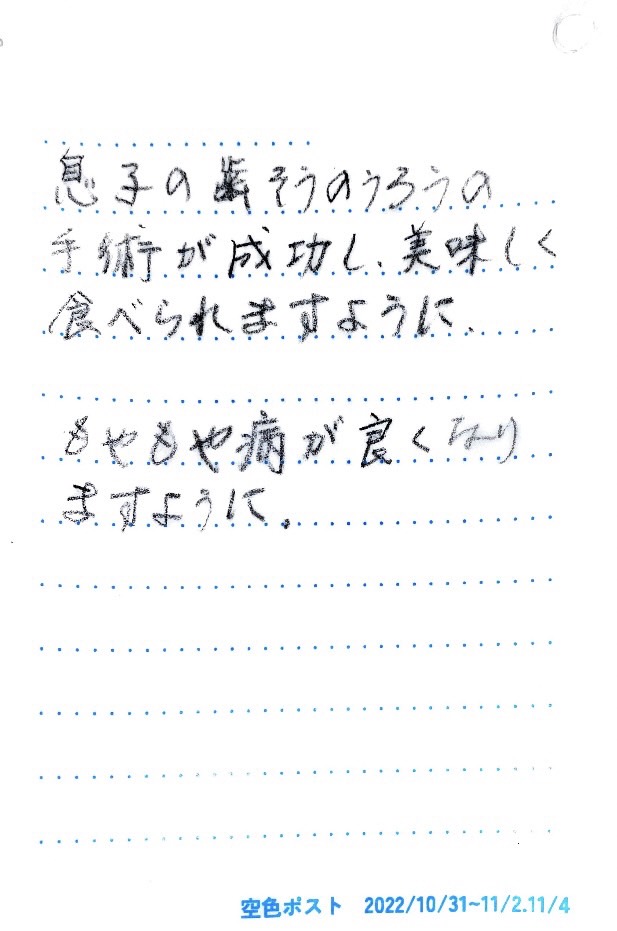 息子の歯そうのうろうの
手術が成功し、美味しく
食べられますように、
もやもや病が良くなり
ますように。
空色ポスト 2022/10/31~11/2.11/4